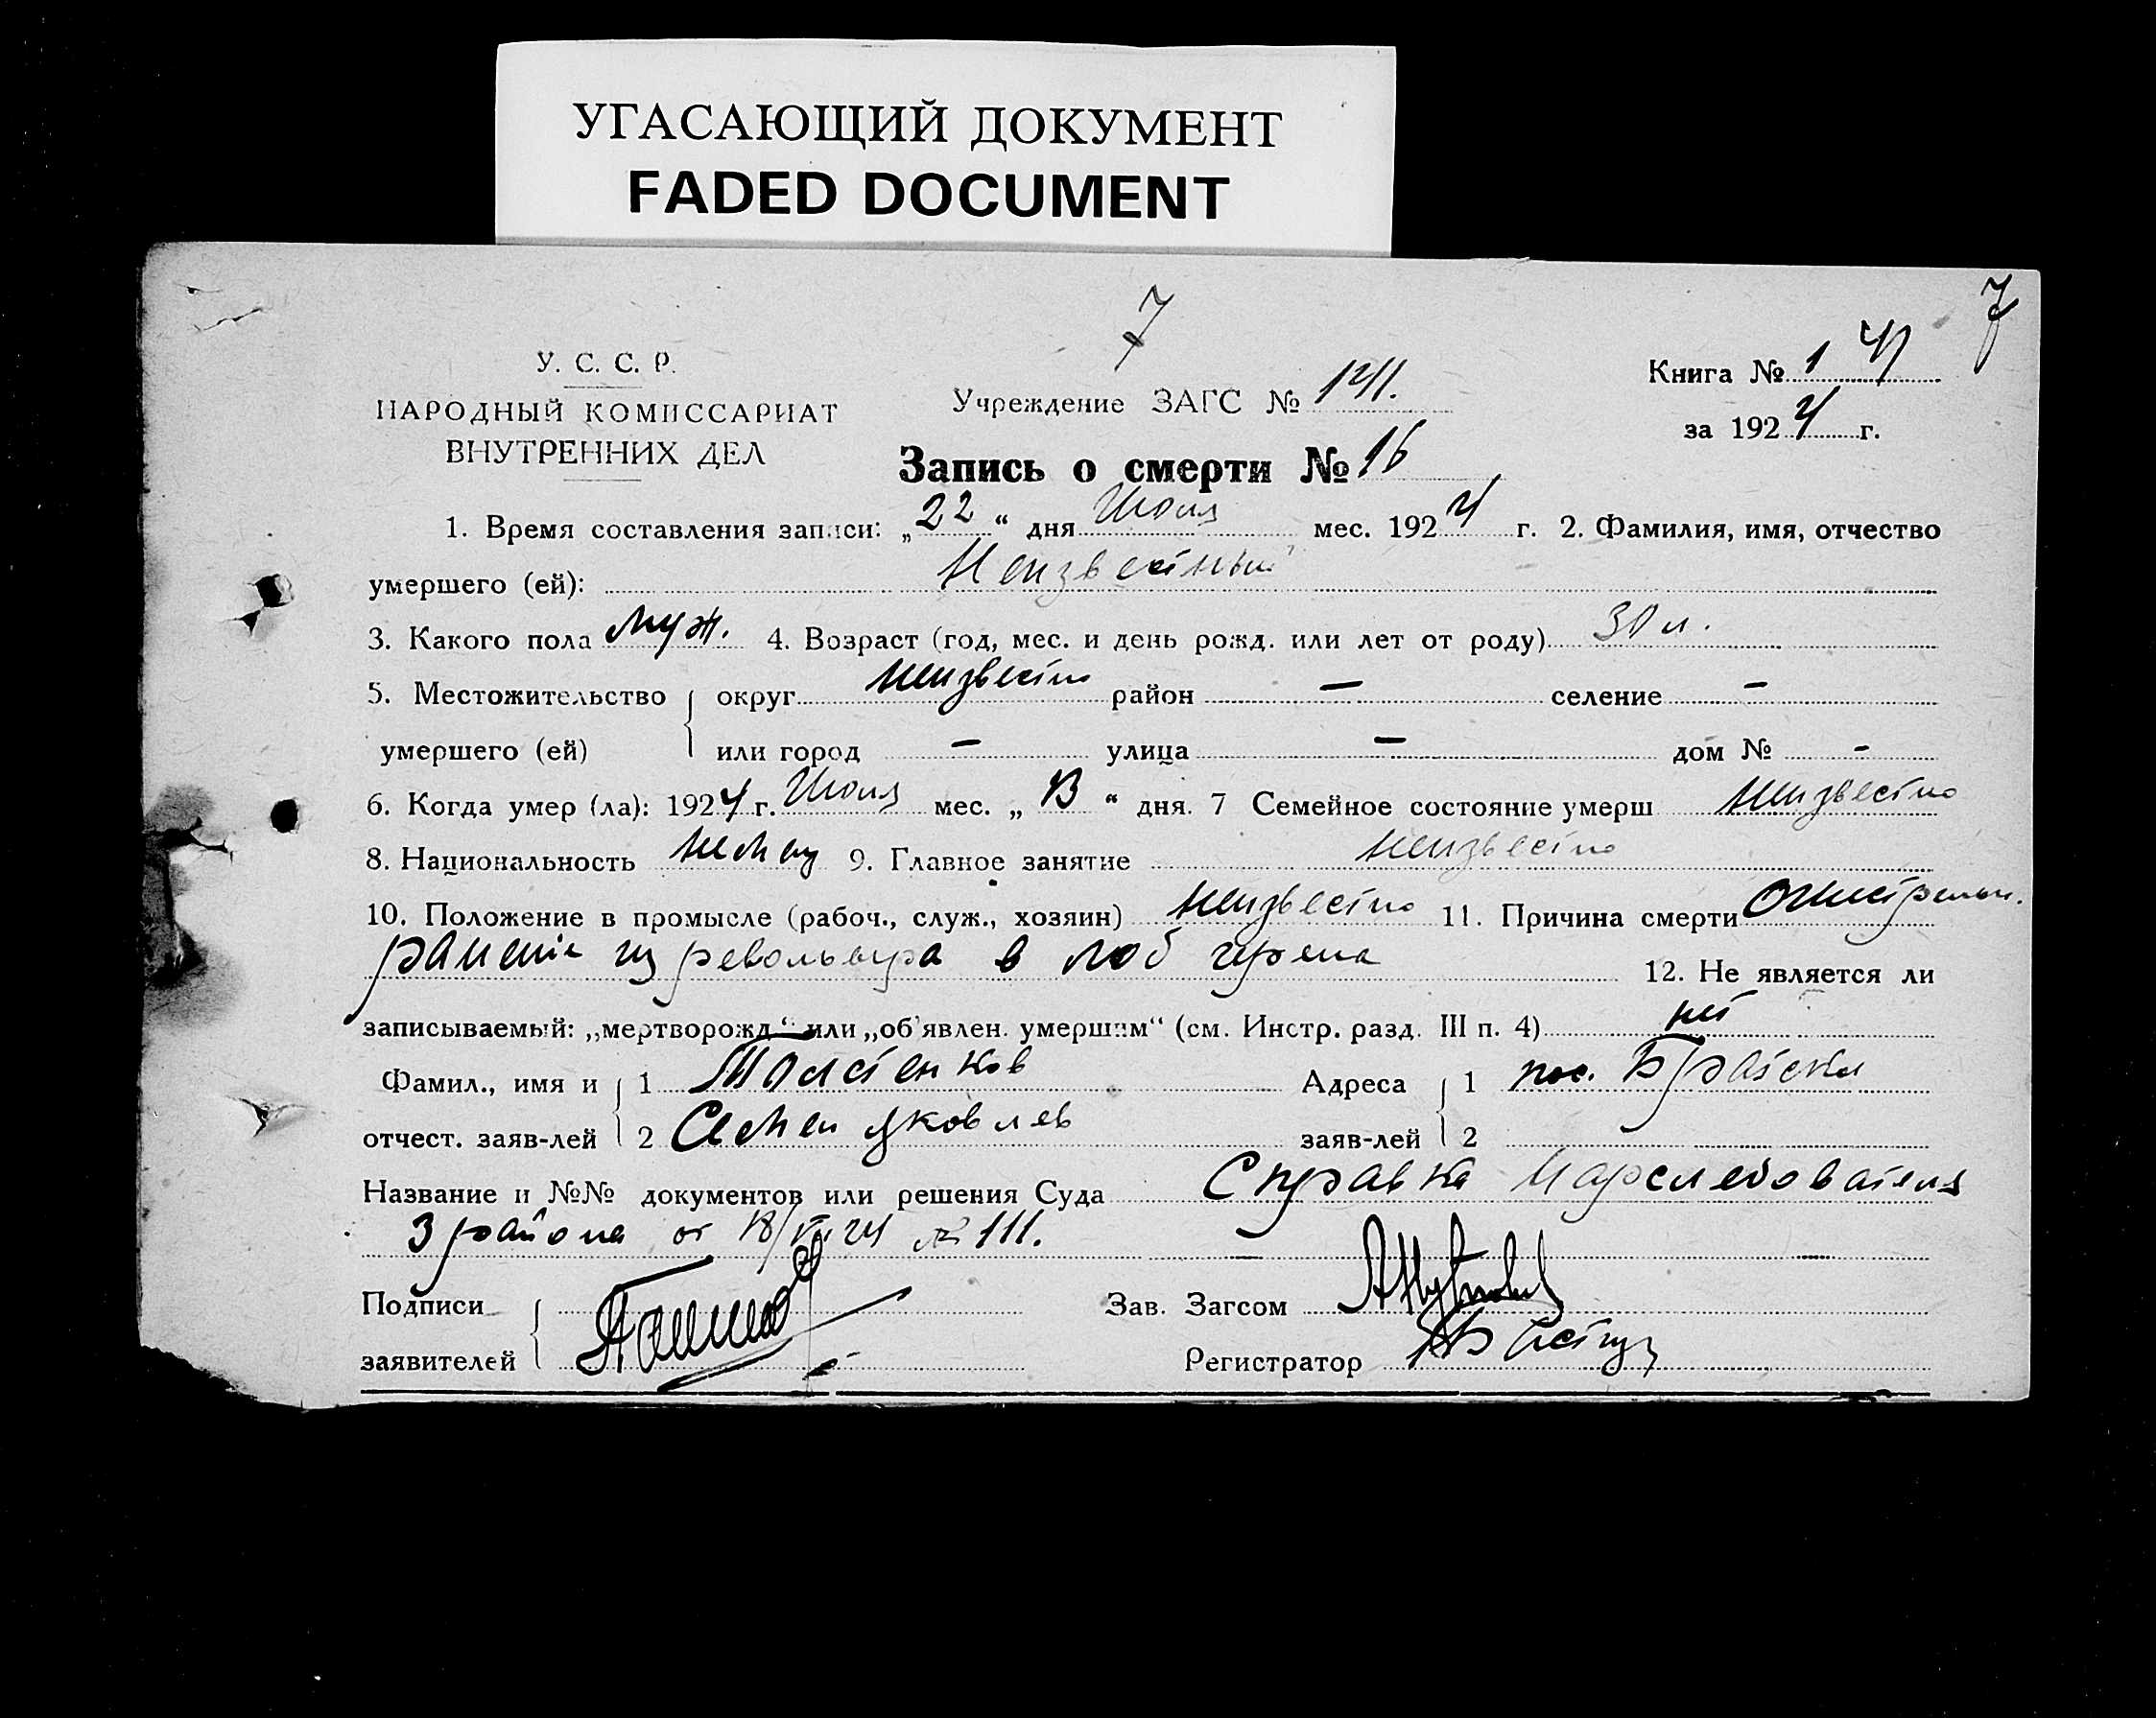 УГАСАЮЩИЙ ДОКУМЕНТ
FADED DOCUMENT
7
7
У. С. С. Р.
НАРОДНЫЙ КОМИССАРИАТ
ВНУТРЕННИХ ДЕЛ
Учреждение ЗАГС №
Книга № 1
за 1924 г.
Запись о смерти № 16
1. Время составления записи: „22“ дня Июля мес. 1924 г. 2. Фамилия, имя, отчество
умершего (ей): Неизвестный
3. Какого пола муж. 4. Возраст (год, мес. и день рожд. или лет от роду) 30 л.
5. Местожительство округ неизвестно район — селение —
умершего (ей) или город — улица — дом № -
6. Когда умер (ла): 1924 г. Июля мес. „ “ дня. 7 Семейное состояние умерш неизвестно
8. Национальность немец 9. Главное занятие неизвестно
10. Положение в промысле (рабоч., служ., хозяин) неизвестно 11. Причина смерти огнестрельн.
ранение из револьвера в лоб черепа 12. Не является ли
записываемый: „мертворожд.“ или „об'явлен. умершим“ (см. Инстр. разд. III п. 4) нет
Фамил., имя и 1 Толстенков Адреса 1 пос. Братски
отчест. заяв-лей 2 Семен Яковлев заяв-лей 2
Название и №№ документов или решения Суда Справка Нарследователя
3 района от 18/VII 24 № 111.
Подписи Зав. Загсом
заявителей Регистратор